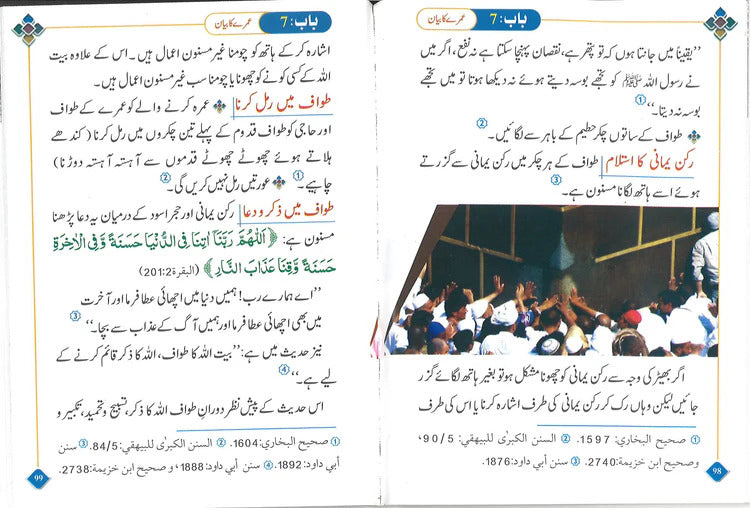 باب: 7
عمرے کا بیان
”یقیناً میں جانتا ہوں کہ تو پتھر ہے، نقصان پہنچا سکتا ہے نہ نفع، اگر میں
نے رسول اللہ ﷺ کو تجھے بوسہ دیتے ہوئے نہ دیکھا ہوتا تو میں تجھے
بوسہ نہ دیتا۔“ ①
طواف کے ساتوں چکر حطیم کے باہر سے لگائیں۔ ②
رکن یمانی کا استلام طواف کے ہر چکر میں رکن یمانی سے گزرتے
ہوئے اسے ہاتھ لگانا مسنون ہے۔ ③
اگر بھیڑ کی وجہ سے رکن یمانی کو چھونا مشکل ہو تو بغیر ہاتھ لگائے گزر
جائیں لیکن وہاں رک کر رکن یمانی کی طرف اشارہ کرنا یا اس کی طرف
① صحيح البخاري: 1597. ② السنن الكبرٰى للبيهقي: 90/5،
وصحيح ابن خزيمة: 2740. ③ سنن أبي داود: 1876.
98
باب: 7
عمرے کا بیان
اشارہ کر کے ہاتھ کو چومنا غیر مسنون اعمال ہیں۔ اس کے علاوہ بیت
اللہ کے کسی کونے کو چھونا یا چومنا سب غیر مسنون اعمال ہیں۔
طواف میں رمل کرنا عمرہ کرنے والے کو عمرے کے طواف
اور حاجی کو طواف قدوم کے پہلے تین چکروں میں رمل کرنا (کندھے
ہلاتے ہوئے چھوٹے چھوٹے قدموں سے آہستہ آہستہ دوڑنا)
چاہیے۔ ① عورتیں رمل نہیں کریں گی۔ ②
طواف میں ذکر و دعا رکن یمانی اور حجر اسود کے درمیان یہ دعا پڑھنا
مسنون ہے: ﴿اَللّٰهُمَّ رَبَّنَآ اٰتِنَا فِي الدُّنْيَا حَسَنَةً وَّفِي الْاٰخِرَةِ
حَسَنَةً وَّقِنَا عَذَابَ النَّارِ﴾ (البقرة 201:2)
”اے ہمارے رب! ہمیں دنیا میں اچھائی عطا فرما اور آخرت
میں بھی اچھائی عطا فرما اور ہمیں آگ کے عذاب سے بچا۔“ ③
نیز حدیث میں ہے: ”بیت اللہ کا طواف، اللہ کا ذکر قائم کرنے کے
لیے ہے۔“ ④
اس حدیث کے پیش نظر دورانِ طواف اللہ کا ذکر، تسبیح و تحمید، تکبیر و
① صحيح البخاري: 1604. ② السنن الكبرٰى للبيهقي: 84/5. ③ سنن
أبي داود: 1892. ④ سنن أبي داود: 1888، و صحيح ابن خزيمة: 2738.
99